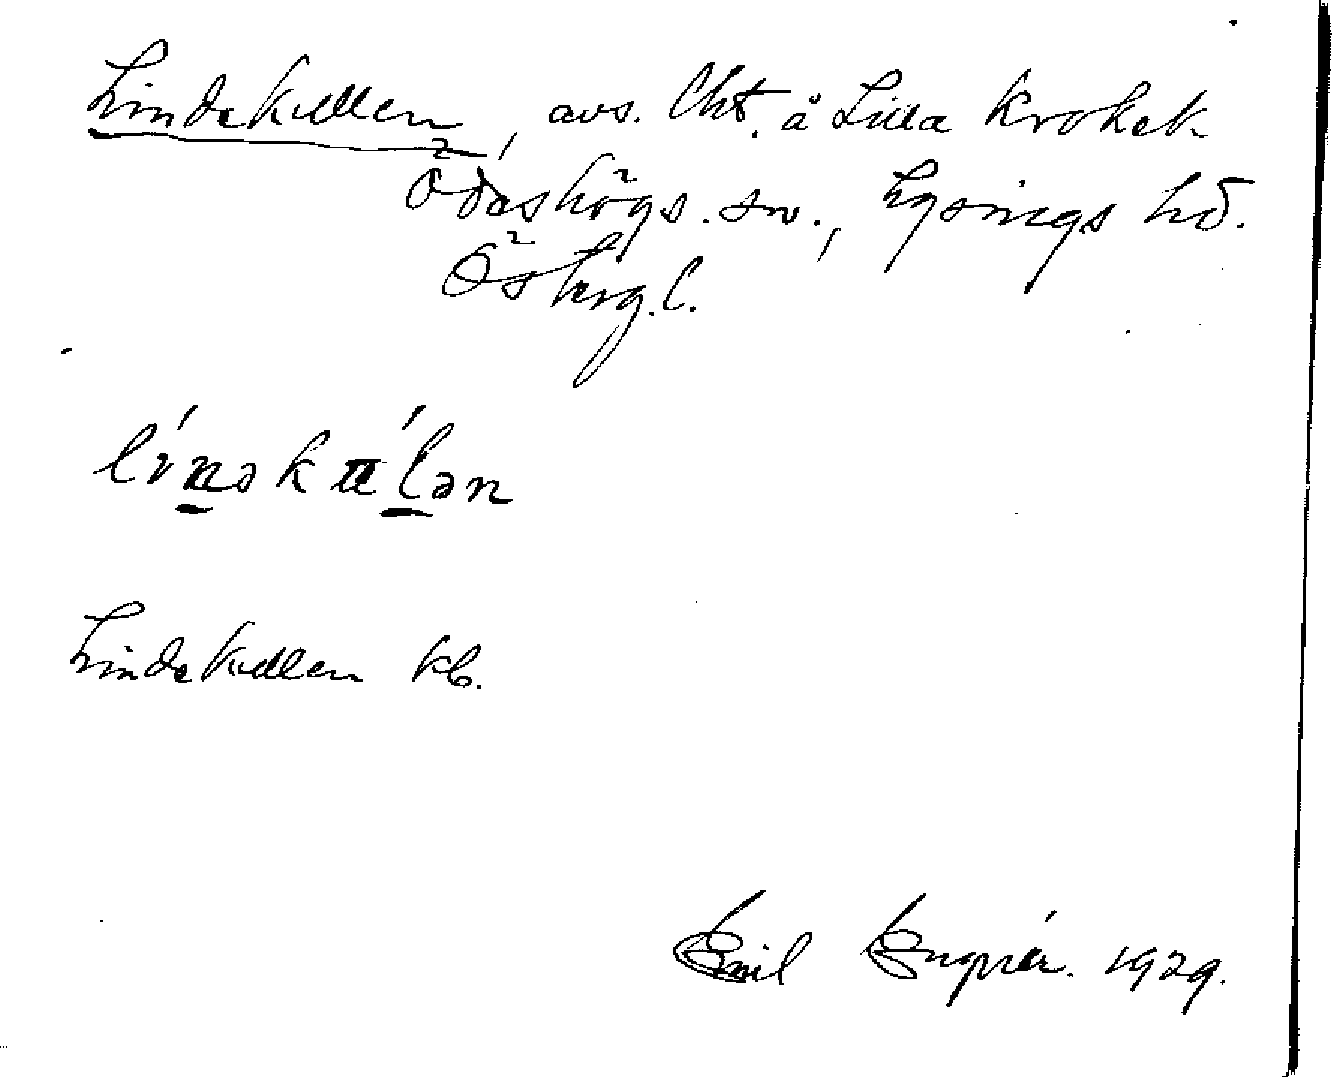 Lindekullen, avs. lht. å Lilla Krokek
Ödeshögs. sn., Lysings hd.
Österg.l.
línəkúlən
Lindekullen kb.
Emil Engnér. 1929.